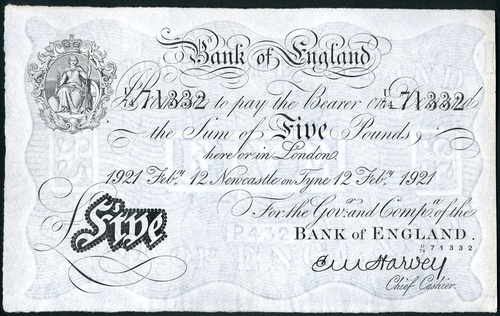 Bank of England
U/14 71332 U/14 71332
I Promise to pay the Bearer on Demand
the Sum of Five Pounds
here or in London.
1921 Feby. 12 Newcastle on Tyne 12 Feby. 1921
For the Govr. and Compa. of the
£Five BANK OF ENGLAND.
71332
E M Harvey
Chief Cashier.